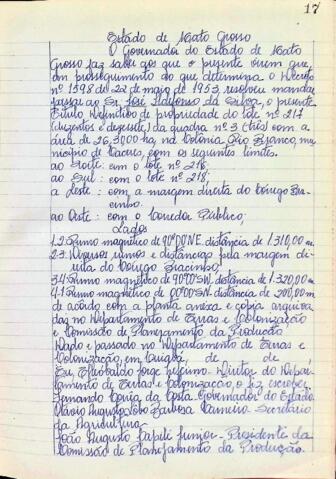 17
Estado de Mato Grosso
O Governador do Estado de Mato
Grosso faz saber aos que o presente virem que
em prosseguimento ao que determina o Decreto
nº 1598 de 22 de maio de 1953, resolveu mandar
passar ao Sr. José Ildefonso da Silva, o presente
Título Definitivo de propriedade do lote nº 217
(duzentos e dezesete) da quadra nº 3 (três) com a
área de 26,3000 ha, na Colônia Rio Branco, mu-
nicípio de Cáceres, com os seguintes limites.
ao Norte: com o lote nº 216;
ao Sul: com o lote nº 218;
a Leste: com a margem direita do Córrego
cinho.
ao Oeste: com o Corredor Público;
Lados
1.2: Rumo magnético de 90º00'NE. distância de 1.310,00 m.
2.3: Diversos rumos e distâncias pela margem di-
reita do Córrego Jiacinho;
3.4: Rumo magnético de 90º00'SW. distância de 1.320,00 m
4.1: Rumo magnético de 00º00'SN. distância de 200,00 m
de acordo com a planta anexa e cópia arquiva-
das no Departamento de Terras e Colonização
e Comissão de Planejamento da Produção
Dado e passado no Departamento de Terras e
Colonização, em Cuiabá, de de
Eu, Theobaldo Jorge Diretor do Depar-
tamento de Terras e Colonização, o fiz escrever.
Fernando Corrêa da Costa. Governador do Estado.
Augusto Lobo Barbosa Carneiro Secretário
da Agricultura.
João Augusto Capilé Junior - Presidente da
Comissão de Planejamento da Produção.